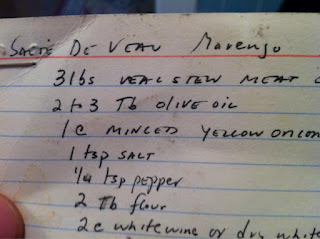 SAUTÉ DE VEAU Marengo
3 lbs VEAL STEW MEAT
2 to 3 Tb OLIVE OIL
1 c MINCED YELLOW ONION
1 tsp SALT
1/4 tsp pepper
2 Tb flour
2 c white wine or dry white